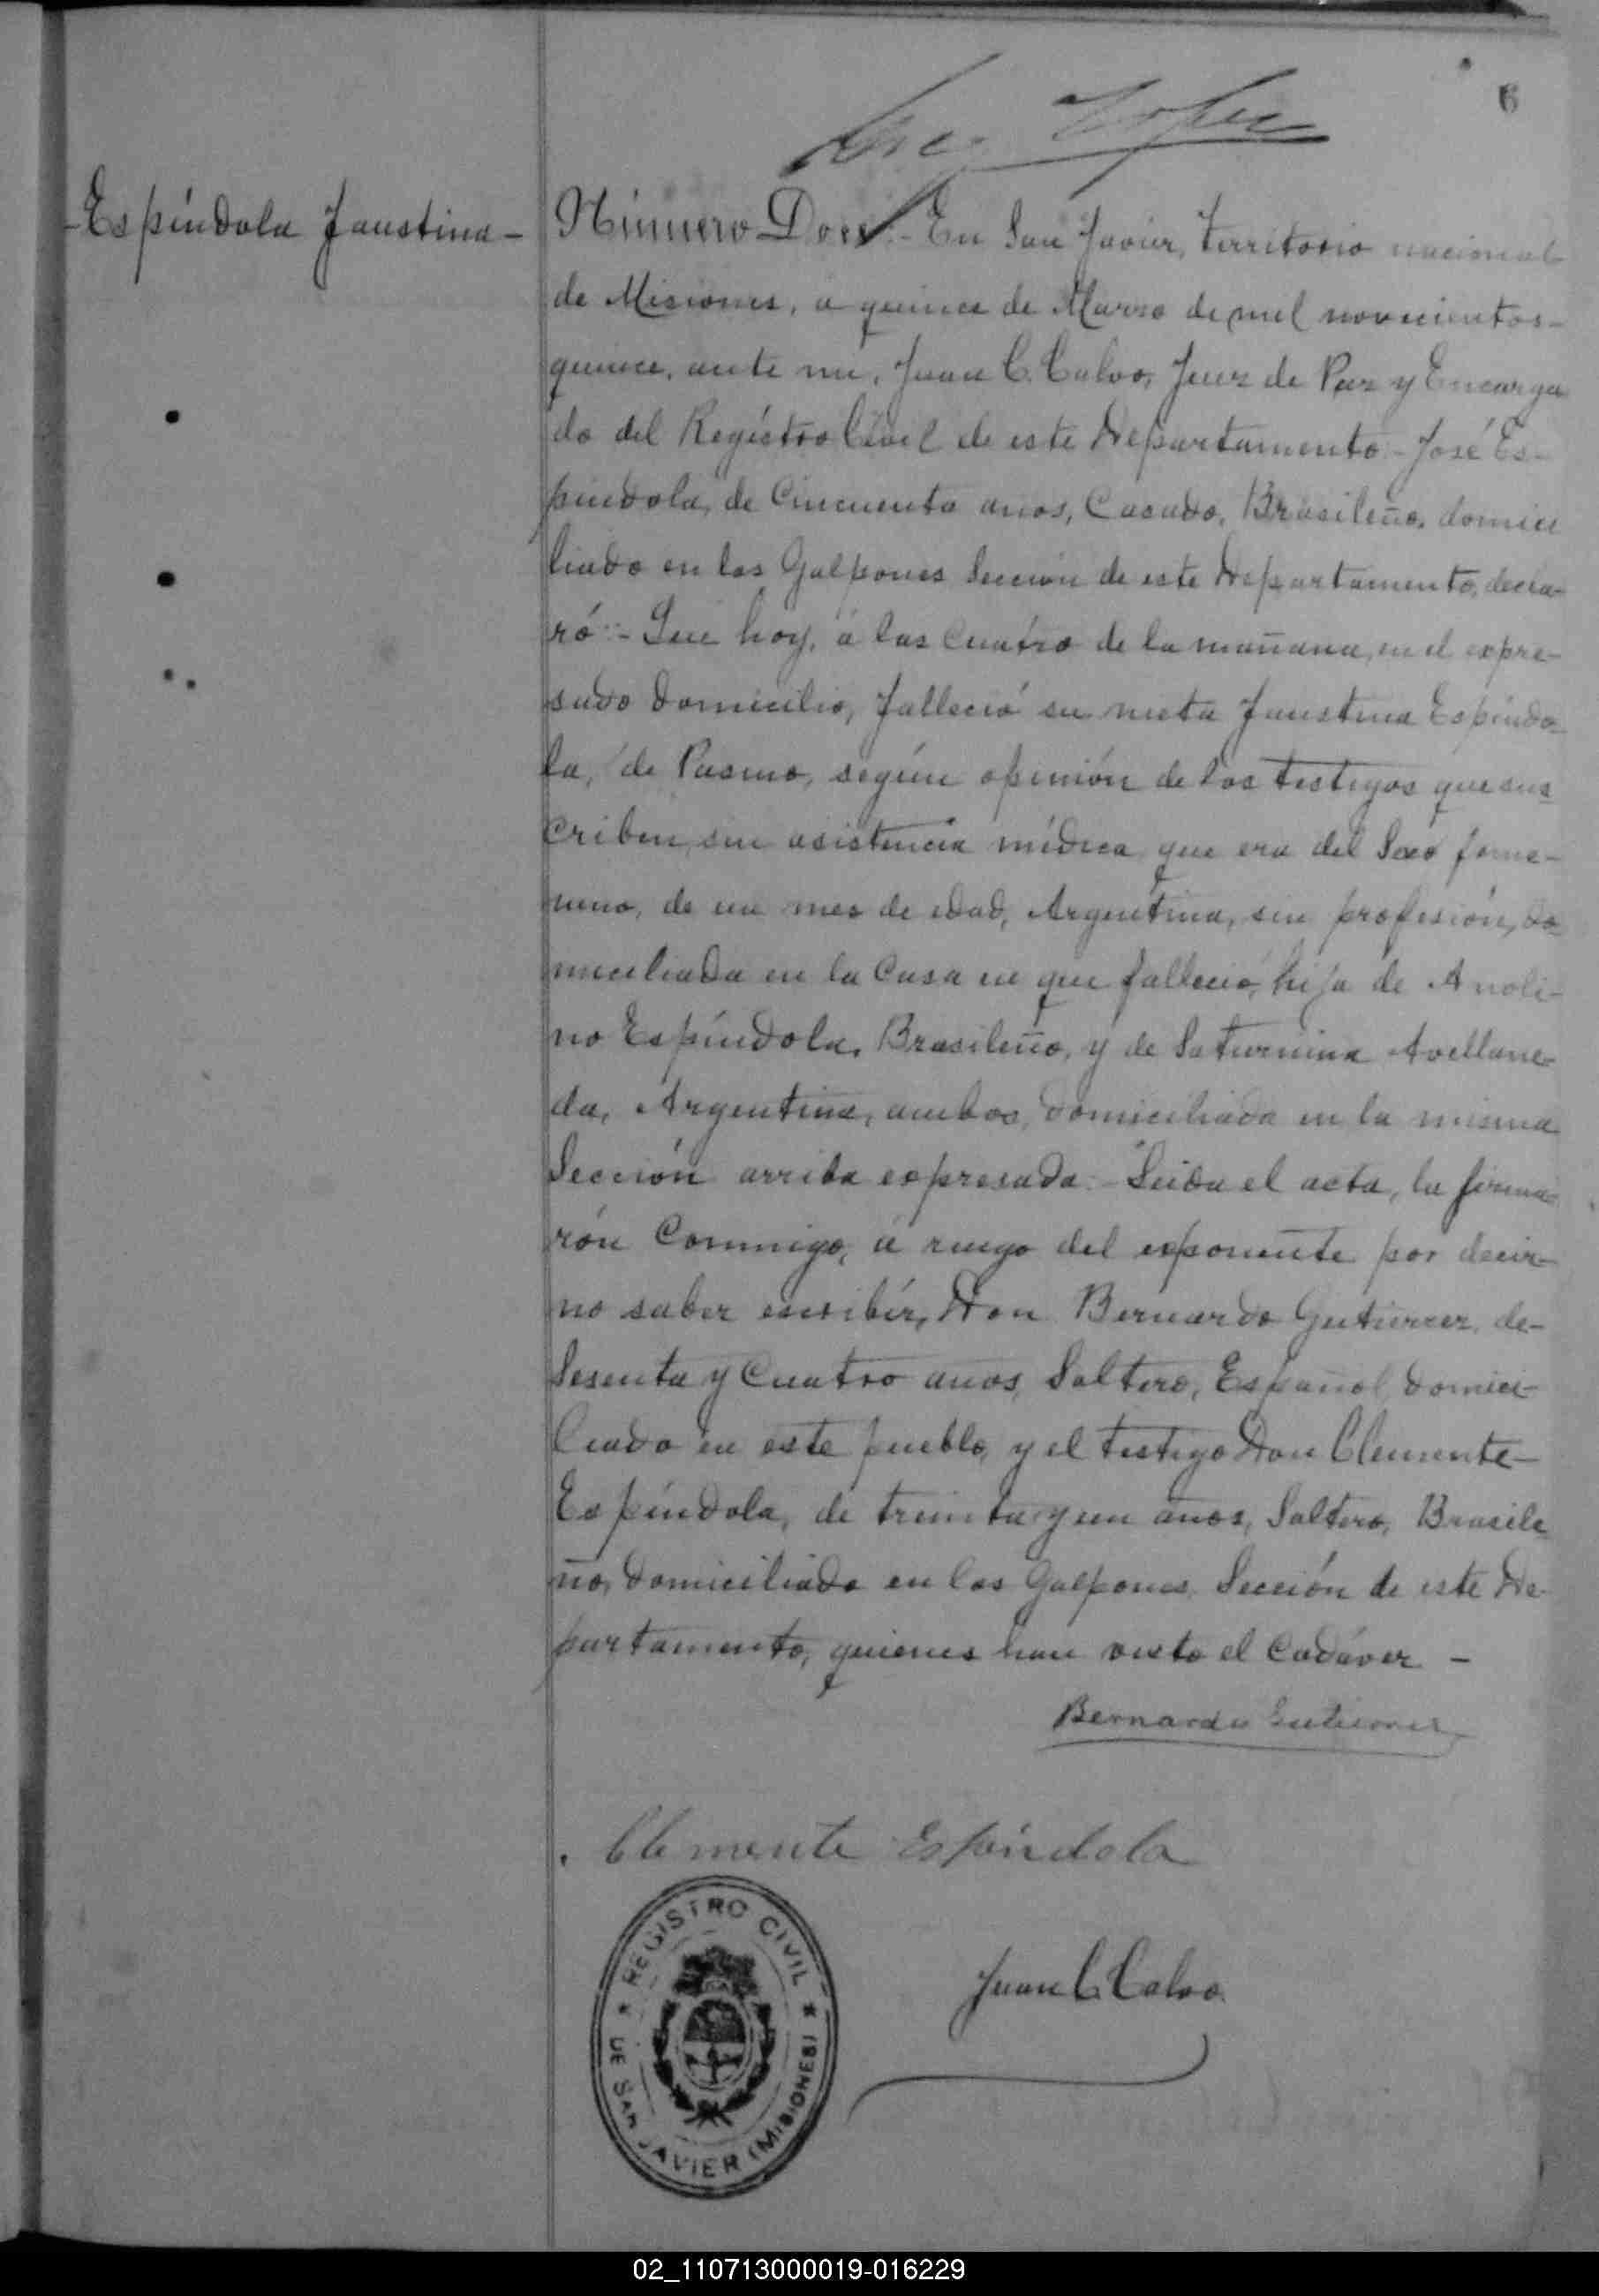 6
-Espíndola Faustina-
Número Doce:- En San Javier, territorio nacional
de Misiones, a quince de Marzo de mil novecientos-
quince, ante mi, Juan C. Calvo, Juez de Paz y Encarga
do del Registro Civil de este Departamento:- José Es-
píndola, de Cincuenta anos, Casado, Brasileño, domici
liado en los Galpones Sección de este Departamento, decla-
ró:- Que hoy, á las Cuatro de la mañana, en el expre-
sado domicilio, falleció su nieta Faustina Espíndo-
la, de Pasmo, según opinión de los testigos que sus
criben, sin asistencia médica, que era del Sexo feme-
nino, de un mes de edad, Argentina, sin profesión, do
miciliada en la Casa en que falleció, hija de Anoli-
no Espíndola, Brasileño, y de Saturnina Avellane-
da, Argentina, ambos, domiciliada en la misma
Sección arriba expresada.- Leida el acta, la firma-
rón Conmigo, á ruego del exponente por decir-
no saber escribír, Don Bernardo Gutierrez, de-
Sesenta y Cuatro anos, Soltero, Español, domici-
liado en este pueblo, y el testigo Don Clemente-
Espíndola, de treinta y un años, Soltero, Brasile
ño, domiciliado en los Galpones Sección de este De-
partamento, quienes han visto el Cadáver -
Bernardo Gutierrez
Clemente Espíndola
REGISTRO CIVIL
DE SAN JAVIER (MISIONES)
Juan C. Calvo
02_110713000019-016229